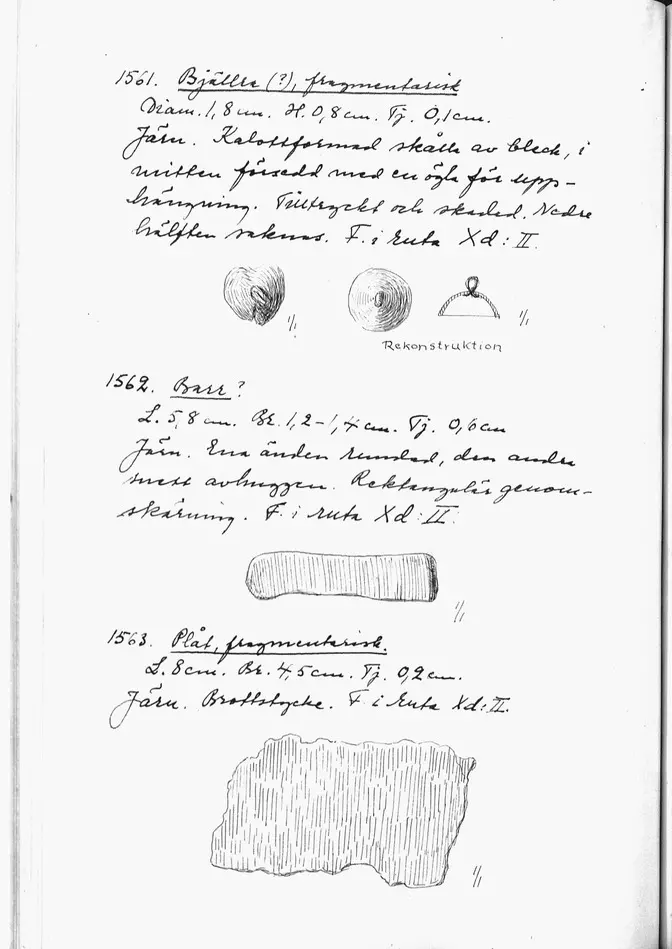 1561. Bjällra (?), fragmentarisk
Diam. 1,8 cm. H. 0,8 cm. Tj. 0,1 cm.
Järn. Kalottformad skålla av bleck, i
mitten försedd med en ögla för upp-
hängning. Tilltryckt och skadad. Nedre
hälften saknas. F. i ruta Xd: II.
1/1
1/1
Rekonstruktion
1562. Barr?
L. 5,8 cm. Br. 1,2-1,4 cm. Tj. 0,6 cm
Järn. Ena änden rundad, den andra
snett avhuggen. Rektangulär genom-
skärning. F. i ruta Xd: II.
1/1
1563. Plåt, fragmentarisk.
L. 8 cm. Br. 4,5 cm. Tj. 0,2 cm.
Järn. Brottstycke. F i ruta Xd: II.
1/1